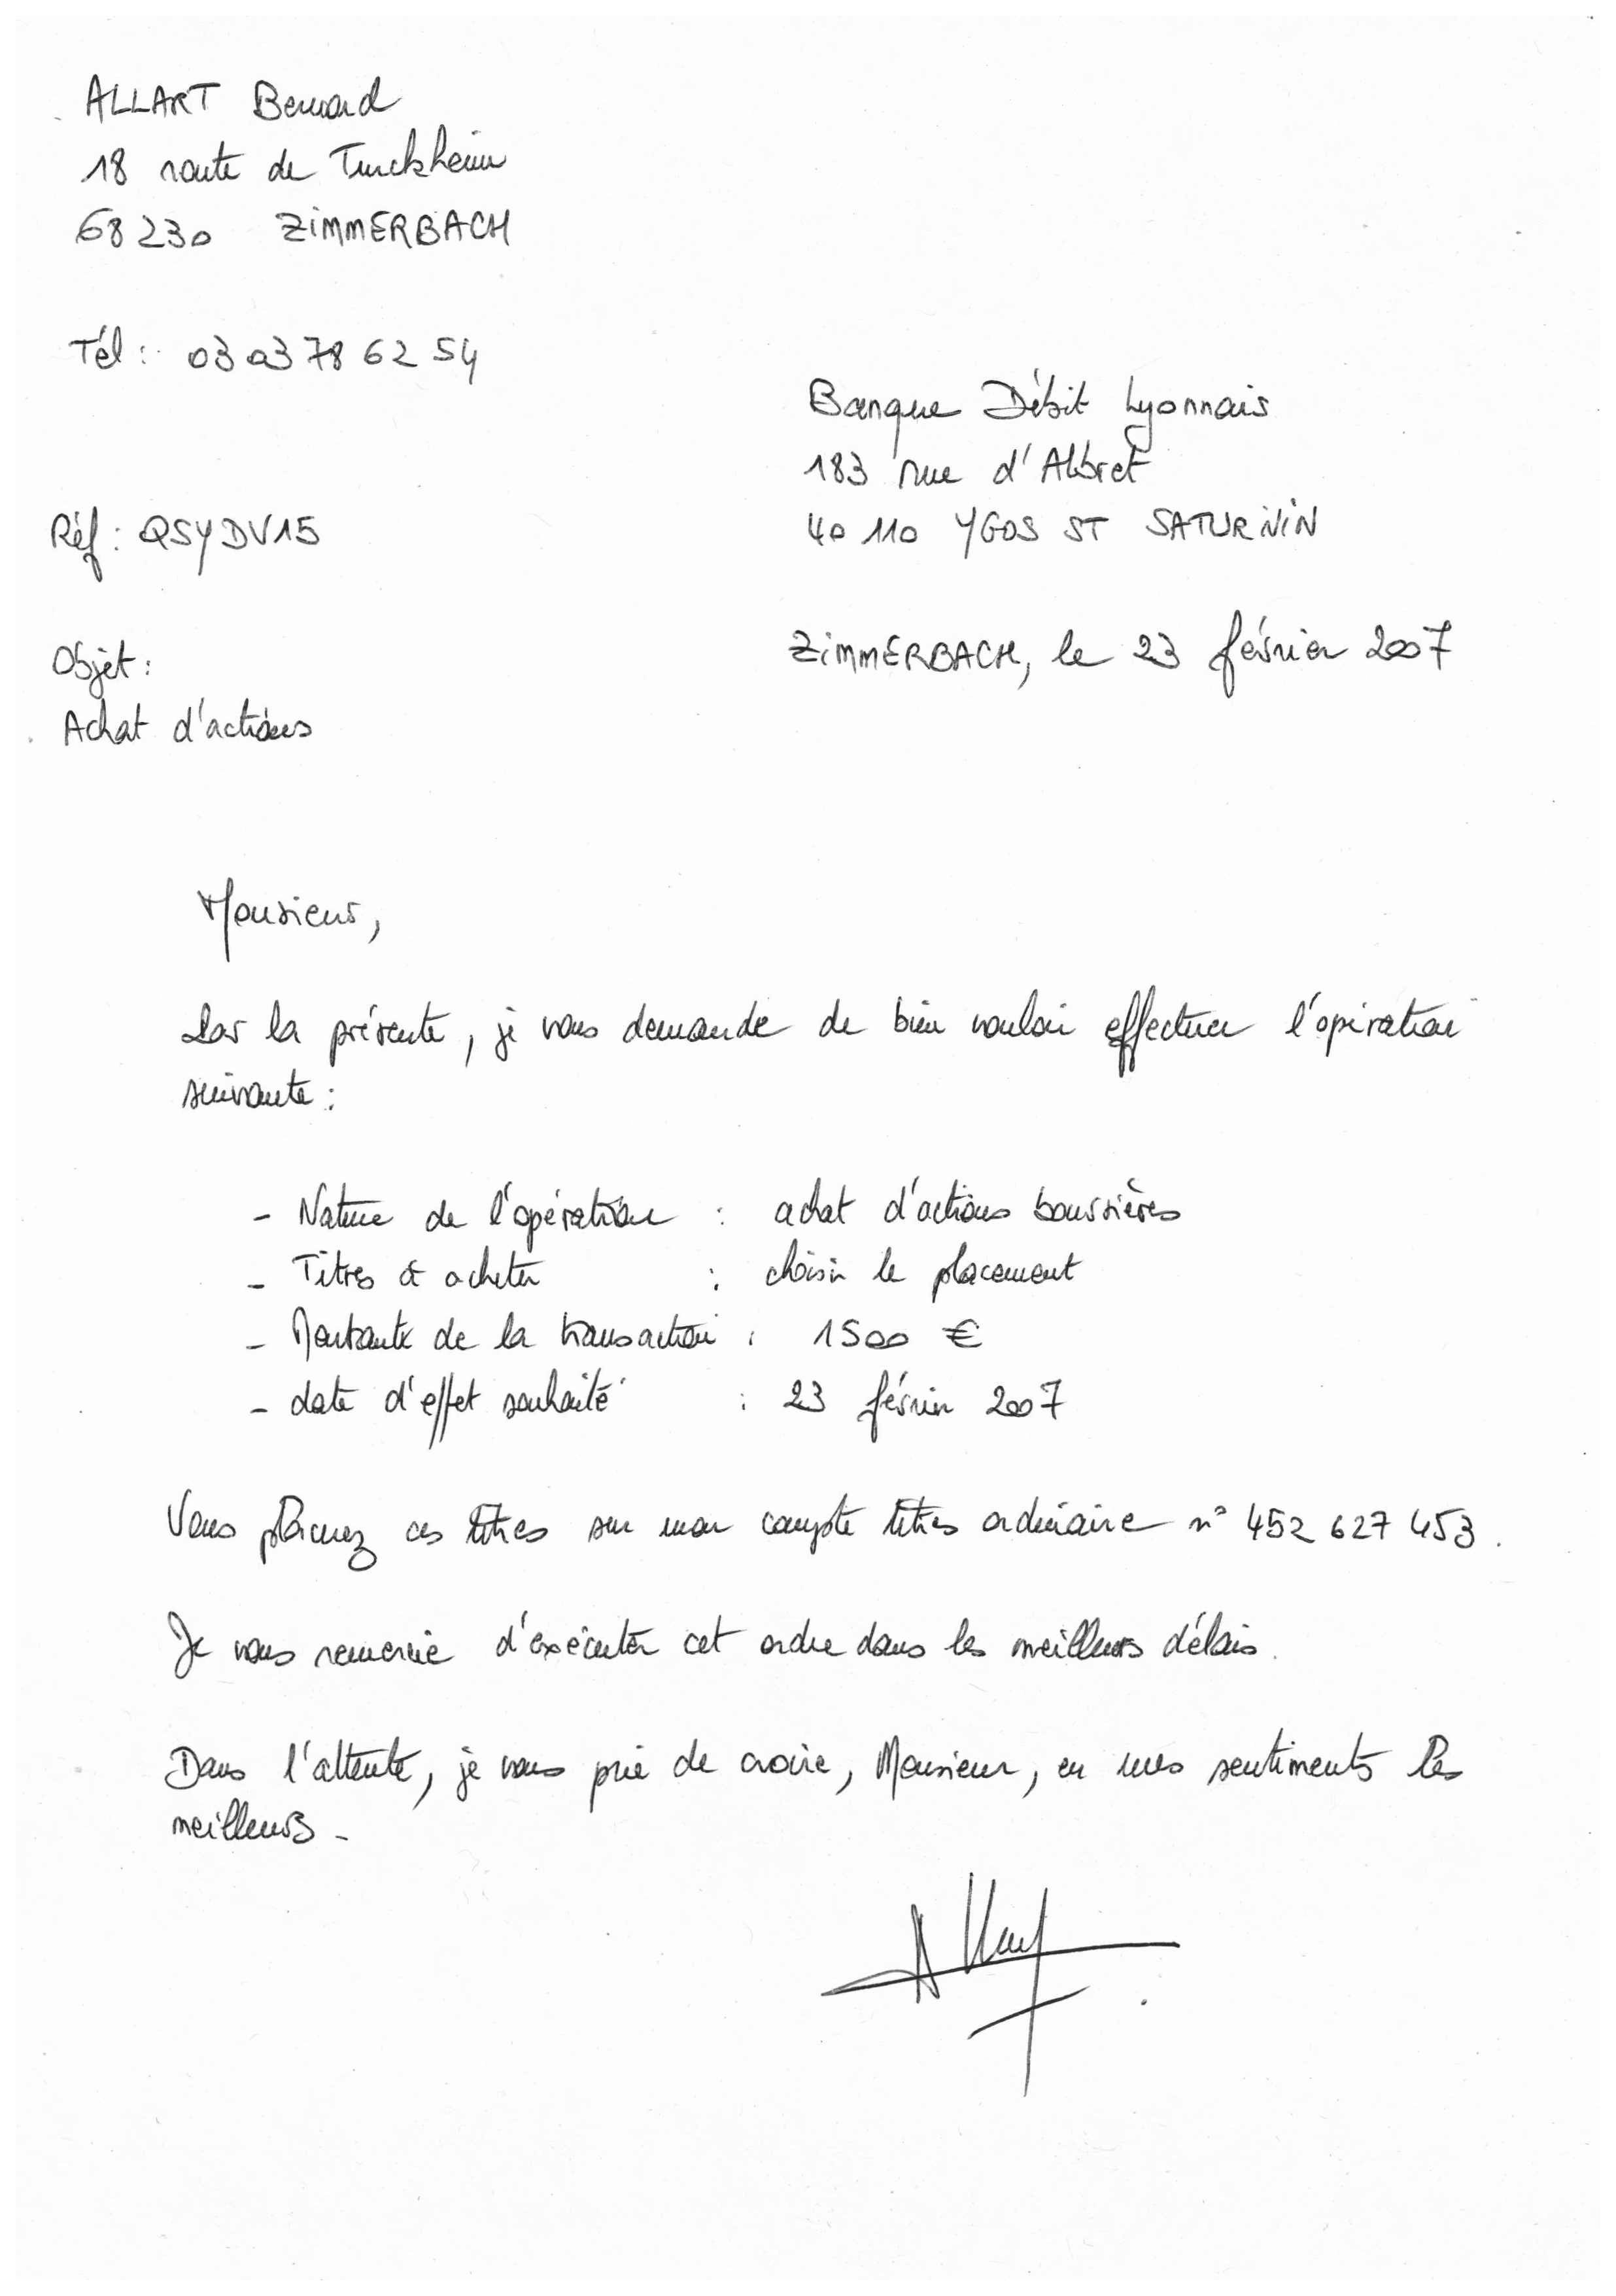 ALLART Bernard
18 route de Turckheim
68230 ZIMMERBACH
Tél : 03 03 78 62 54
Banque Débit Lyonnais
183 rue d'Albret
40 110 YGOS ST SATURNIN
Réf : QSYDV15
ZIMMERBACH, le 23 février 2007
Objet :
Achat d'actions
Monsieur,
Par la présente, je vous demande de bien vouloir effectuer l'opération
suivante :
- Nature de l'opération : achat d'actions boursières
- Titres à acheter : choisir le placement
- Montant de la transaction : 1500 €
- date d'effet souhaité : 23 février 2007
Vous placerez ces titres sur mon compte titres ordinaire n° 452 627 453.
Je vous remercie d'exécuter cet ordre dans les meilleurs délais.
Dans l'attente, je vous prie de croire, Monsieur, en mes sentiments les
meilleurs.